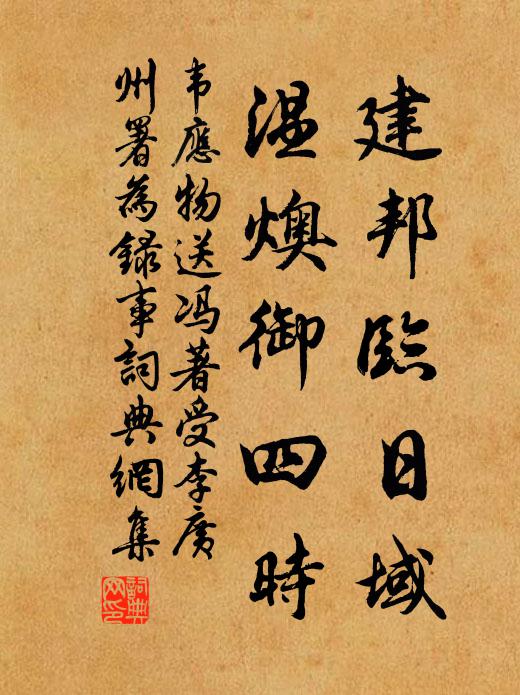 建邦臨日域
温燠御四時
韦應物送冯著受李廣
州署為録事詞典網集
詞典
网印